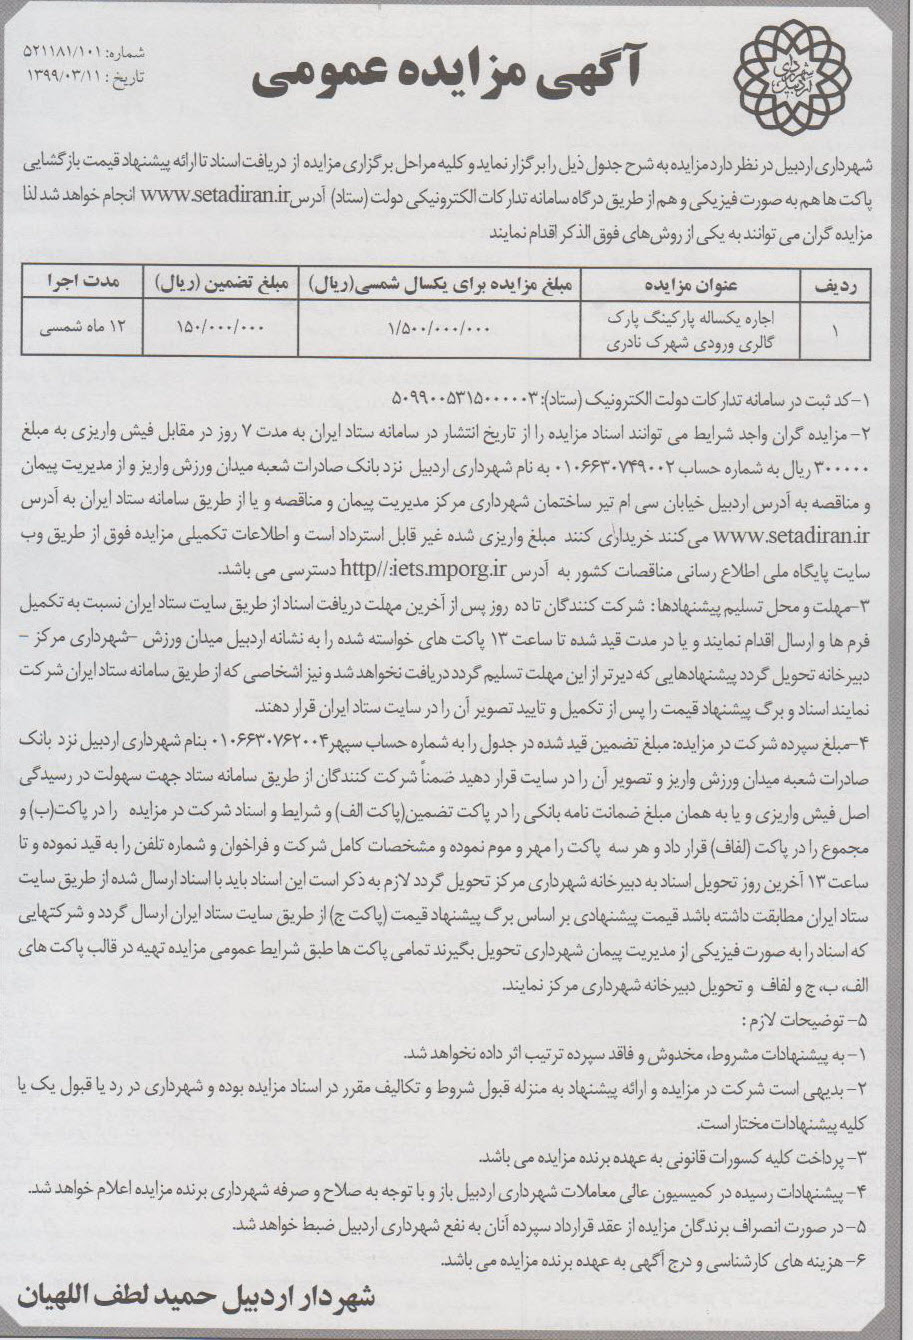 آگهی مزایده عمومی
شماره: ۵۲۱۱۸۱/۱۰۱
تاریخ : ۱۳۹۹/۰۳/۱۱
شهرداری اردبیل
شهرداری اردبیل در نظر دارد مزایده به شرح جدول ذیل را برگزار نماید و کلیه مراحل برگزاری مزایده از دریافت اسناد تا ارائه پیشنهاد قیمت بازگشایی
پاکت ها هم به صورت فیزیکی و هم از طریق درگاه سامانه تدارکات الکترونیکی دولت (ستاد) آدرس www.setadiran.ir انجام خواهد شد لذا
مزایده گران می توانند به یکی از روش‌های فوق الذکر اقدام نمایند
ردیف عنوان مزایده مبلغ مزایده برای یکسال شمسی(ریال) مبلغ تضمین (ریال) مدت اجرا
۱ اجاره یکساله پارکینگ پارک گالری ورودی شهرک نادری ۱/۵۰۰/۰۰۰/۰۰۰ ۱۵۰/۰۰۰/۰۰۰ ۱۲ ماه شمسی
۱-کد ثبت در سامانه تدارکات دولت الکترونیک (ستاد): ۵۰۹۹۰۰۵۳۱۵۰۰۰۰۰۳
۲- مزایده گران واجد شرایط می توانند اسناد مزایده را از تاریخ انتشار در سامانه ستاد ایران به مدت ۷ روز در مقابل فیش واریزی به مبلغ
۳۰۰۰۰۰ ریال به شماره حساب ۰۱۰۶۶۳۰۷۴۹۰۰۲ به نام شهرداری اردبیل نزد بانک صادرات شعبه میدان ورزش واریز و از مدیریت پیمان
و مناقصه به آدرس اردبیل خیابان سی ام تیر ساختمان شهرداری مرکز مدیریت پیمان و مناقصه و یا از طریق سامانه ستاد ایران به آدرس
www.setadiran.ir می‌کنند خریداری کنند مبلغ واریزی شده غیر قابل استرداد است و اطلاعات تکمیلی مزایده فوق از طریق وب
سایت پایگاه ملی اطلاع رسانی مناقصات کشور به آدرس http//:iets.mporg.ir دسترسی می باشد.
۳-مهلت و محل تسلیم پیشنهادها: شرکت کنندگان تا ده روز پس از آخرین مهلت دریافت اسناد از طریق سایت ستاد ایران نسبت به تکمیل
فرم ها و ارسال اقدام نمایند و یا در مدت قید شده تا ساعت ۱۳ پاکت های خواسته شده را به نشانه اردبیل میدان ورزش -شهرداری مرکز -
دبیرخانه تحویل گردد پیشنهادهایی که دیرتر از این مهلت تسلیم گردد دریافت نخواهد شد و نیز اشخاصی که از طریق سامانه ستاد ایران شرکت
نمایند اسناد و برگ پیشنهاد قیمت را پس از تکمیل و تایید تصویر آن را در سایت ستاد ایران قرار دهند.
۴-مبلغ سپرده شرکت در مزایده: مبلغ تضمین قید شده در جدول را به شماره حساب سپهر ۰۱۰۶۶۳۰۷۶۲۰۰۴ بنام شهرداری اردبیل نزد بانک
صادرات شعبه میدان ورزش واریز و تصویر آن را در سایت قرار دهید ضمناً شرکت کنندگان از طریق سامانه ستاد جهت سهولت در رسیدگی
اصل فیش واریزی و یا به همان مبلغ ضمانت نامه بانکی را در پاکت تضمین(پاکت الف) و شرایط و اسناد شرکت در مزایده را در پاکت(ب) و
مجموع را در پاکت (لفاف) قرار داد و هر سه پاکت را مهر و موم نموده و مشخصات کامل شرکت و فراخوان و شماره تلفن را به قید نموده و تا
ساعت ۱۳ آخرین روز تحویل اسناد به دبیرخانه شهرداری مرکز تحویل گردد لازم به ذکر است این اسناد باید با اسناد ارسال شده از طریق سایت
ستاد ایران مطابقت داشته باشد قیمت پیشنهادی بر اساس برگ پیشنهاد قیمت (پاکت ج) از طریق سایت ستاد ایران ارسال گردد و شرکتهایی
که اسناد را به صورت فیزیکی از مدیریت پیمان شهرداری تحویل بگیرند تمامی پاکت ها طبق شرایط عمومی مزایده تهیه در قالب پاکت های
الف، ب، ج و لفاف و تحویل دبیرخانه شهرداری مرکز نمایند.
۵- توضیحات لازم :
۱- به پیشنهادات مشروط، مخدوش و فاقد سپرده ترتیب اثر داده نخواهد شد.
۲- بدیهی است شرکت در مزایده و ارائه پیشنهاد به منزله قبول شروط و تکالیف مقرر در اسناد مزایده بوده و شهرداری در رد یا قبول یک یا
کلیه پیشنهادات مختار است.
۳- پرداخت کلیه کسورات قانونی به عهده برنده مزایده می باشد.
۴- پیشنهادات رسیده در کمیسیون عالی معاملات شهرداری اردبیل باز و با توجه به صلاح و صرفه شهرداری برنده مزایده اعلام خواهد شد.
۵- در صورت انصراف برندگان مزایده از عقد قرارداد سپرده آنان به نفع شهرداری اردبیل ضبط خواهد شد.
۶- هزینه های کارشناسی و درج آگهی به عهده برنده مزایده می باشد.
شهردار اردبیل حمید لطف اللهیان